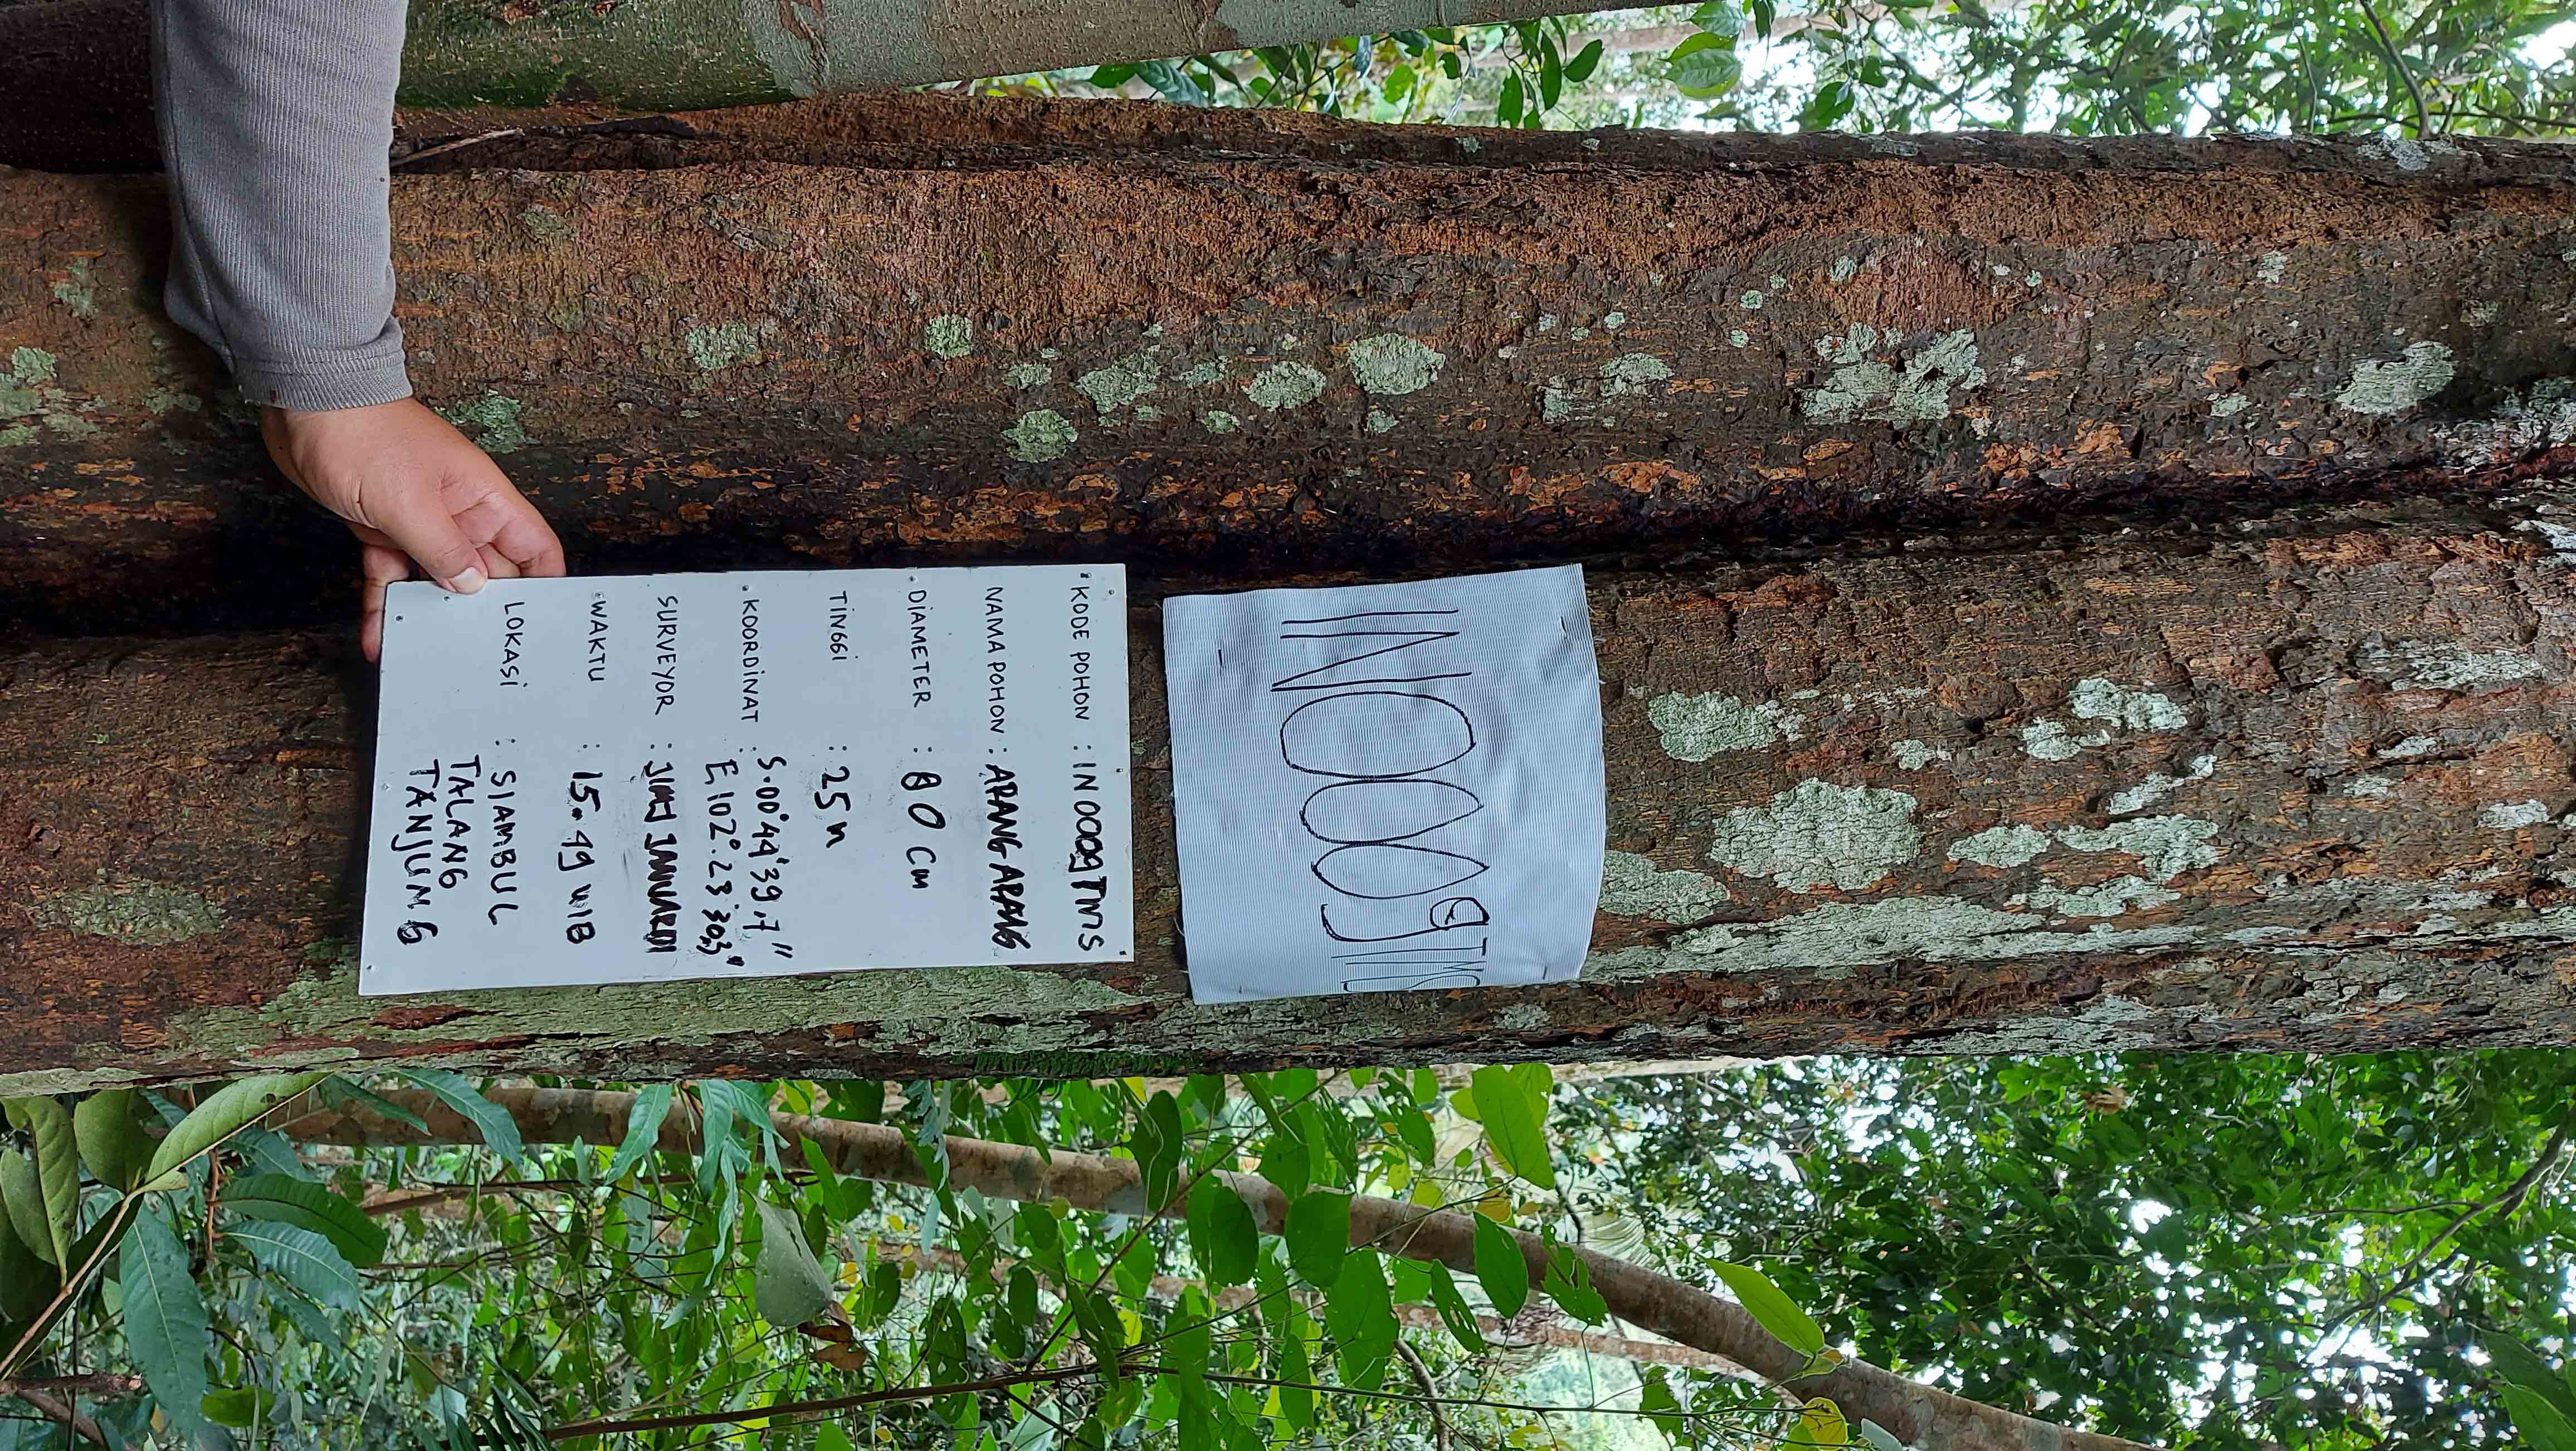 IN0009TMS
KODE POHON : IN 0009 TMS
NAMA POHON : ARANG ARANG
DIAMETER : 80 Cm
TINGGI : 25 m
KOORDINAT : S.00°44'39,7"
E 102°.23'30,3"
SURVEYOR : JIMJ JANUARDI
WAKTU : 15.49 WIB
LOKASI : SIAMBUL
TALANG
TANJUNG